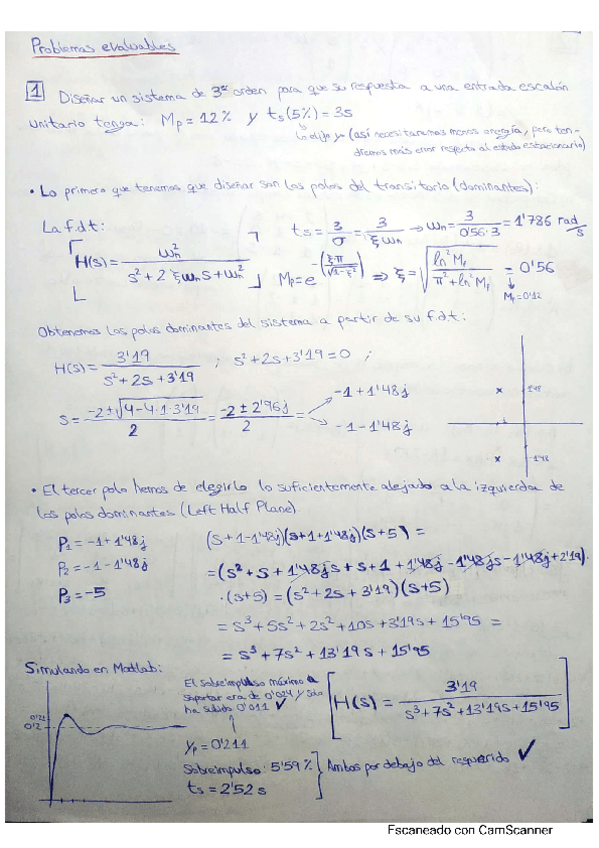 Problemas evaluables
1 Diseñar un sistema de 3er orden para que su respuesta a una entrada escalón
unitario tenga: Mp = 12% y ts(5%) = 3s
lo elijo yo (así necesitaremos menos energía, pero ten-
dremos más error respecto al estado estacionario)
• Lo primero que tenemos que diseñar son los polos del transitorio (dominantes):
La f.d.t:
H(s) = ωn² / (s² + 2ξωns + ωn²)
ts = 3/σ = 3/(ξωn) → ωn = 3/(0'56·3) = 1'786 rad/s
Mp = e^-(ξπ/√(1-ξ²)) ⇒ ξ = √(ln²Mp / (π² + ln²Mp)) = 0'56
Mp=0'12
Obtenemos los polos dominantes del sistema a partir de su f.d.t:
H(s) = 3'19 / (s² + 2s + 3'19) ; s² + 2s + 3'19 = 0 ;
s = (-2 ± √(4-4·1·3'19)) / 2 = (-2 ± 2'96j) / 2
-1 + 1'48j
-1 - 1'48j
1'48
-1'48
• El tercer polo hemos de elegirlo lo suficientemente alejado a la izquierda de
los polos dominantes (Left Half Plane)
P1 = -1 + 1'48j
P2 = -1 - 1'48j
P3 = -5
(s+1-1'48j)(s+1+1'48j)(s+5) =
= (s² + s + 1'48js + s + 1 + 1'48j - 1'48js - 1'48j + 2'19)·
·(s+5) = (s² + 2s + 3'19)(s+5)
= s³ + 5s² + 2s² + 10s + 3'19s + 15'95 =
= s³ + 7s² + 13'19s + 15'95
Simulando en Matlab:
0'211
0'2
El sobreimpulso máximo a
soportar era de 0'024 y solo
ha subido 0'011 ✓
yp = 0'211
Sobreimpulso: 5'59%
ts = 2'52 s
Ambos por debajo del requerido ✓
H(s) = 3'19 / (s³ + 7s² + 13'19s + 15'95)
Escaneado con CamScanner